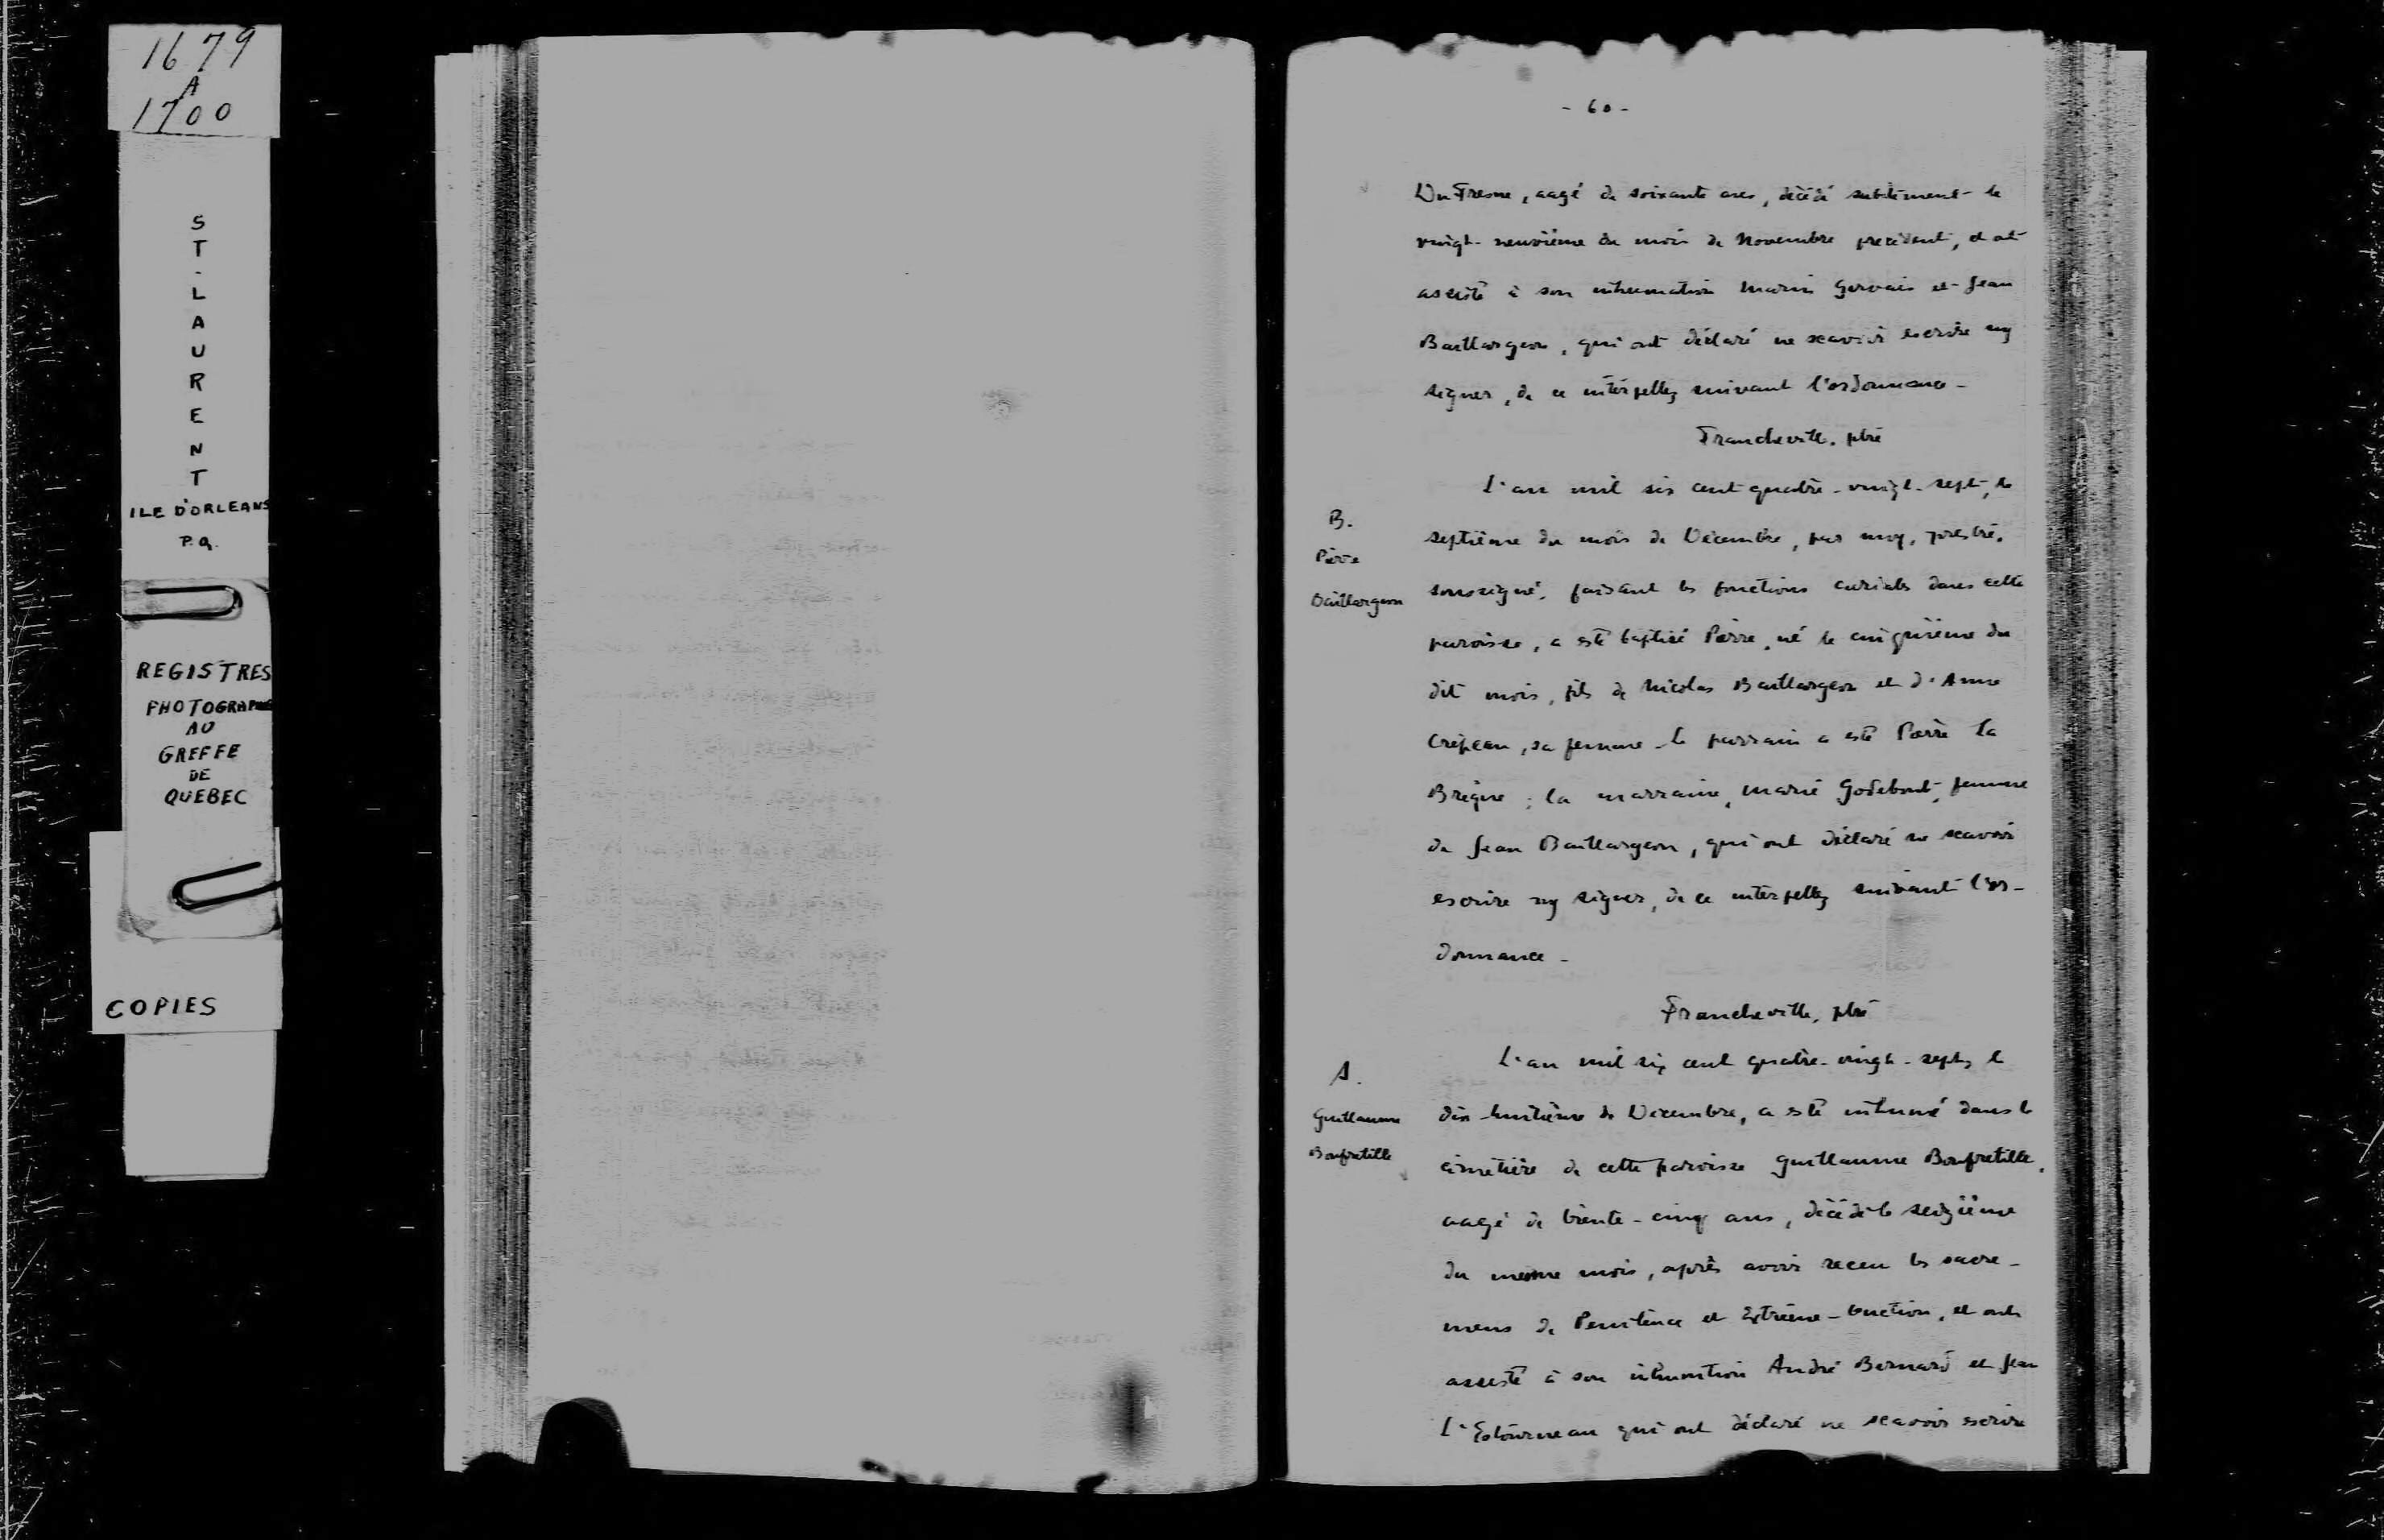 1679
A
1700
ST-LAURENT
ILE D'ORLEANS
P.Q.
REGISTRES
PHOTOGRAPHIES
AU
GREFFE
DE
QUEBEC
COPIES
- 60 -
DuFresne, aagé de soixante ans, décédé subitement le
vingt-neuvième du mois de Novembre precedent, et ont
assisté à son inhumation Marin Gervais et Jean
Baillargeon, qui ont déclaré ne scavoir escrire ny
signer, de ce interpellez suivant l'ordonnance -
Francheville, ptre
L'an mil six cent quatre-vingt-sept, le
B.
Pierre
Baillargeon
septième du mois de Décembre, par moy, prestre,
soussigné, faisant les fonctions curiales dans cette
paroisse, a esté baptisé Pierre, né le cinquième du
dit mois, fils de Nicolas Baillargeon et d'Anne
Crepeau, sa femme - le parrain a esté Pierre la
Brègne ; la marraine, Marie Godebout, femme
de Jean Baillargeon, qui ont déclaré ne scavoir
escrire ny signer, de ce interpellez suivant l'or-
donnance -
Francheville, ptre
L'an mil six cent quatre-vingt-sept, le
S.
Guillaume
Bonfretille
dix-huitième de Décembre, a esté inhumé dans le
cimetière de cette paroisse Guillaume Bonfretille,
aagé de trente-cinq ans, décédé le seizième
du mesme mois, après avoir receu les sacre-
mens de Penitence et Extrême-Onction, et ont
assisté à son inhumation André Bernard et Jean
L'Estourneau qui ont déclaré ne scavoir escrire